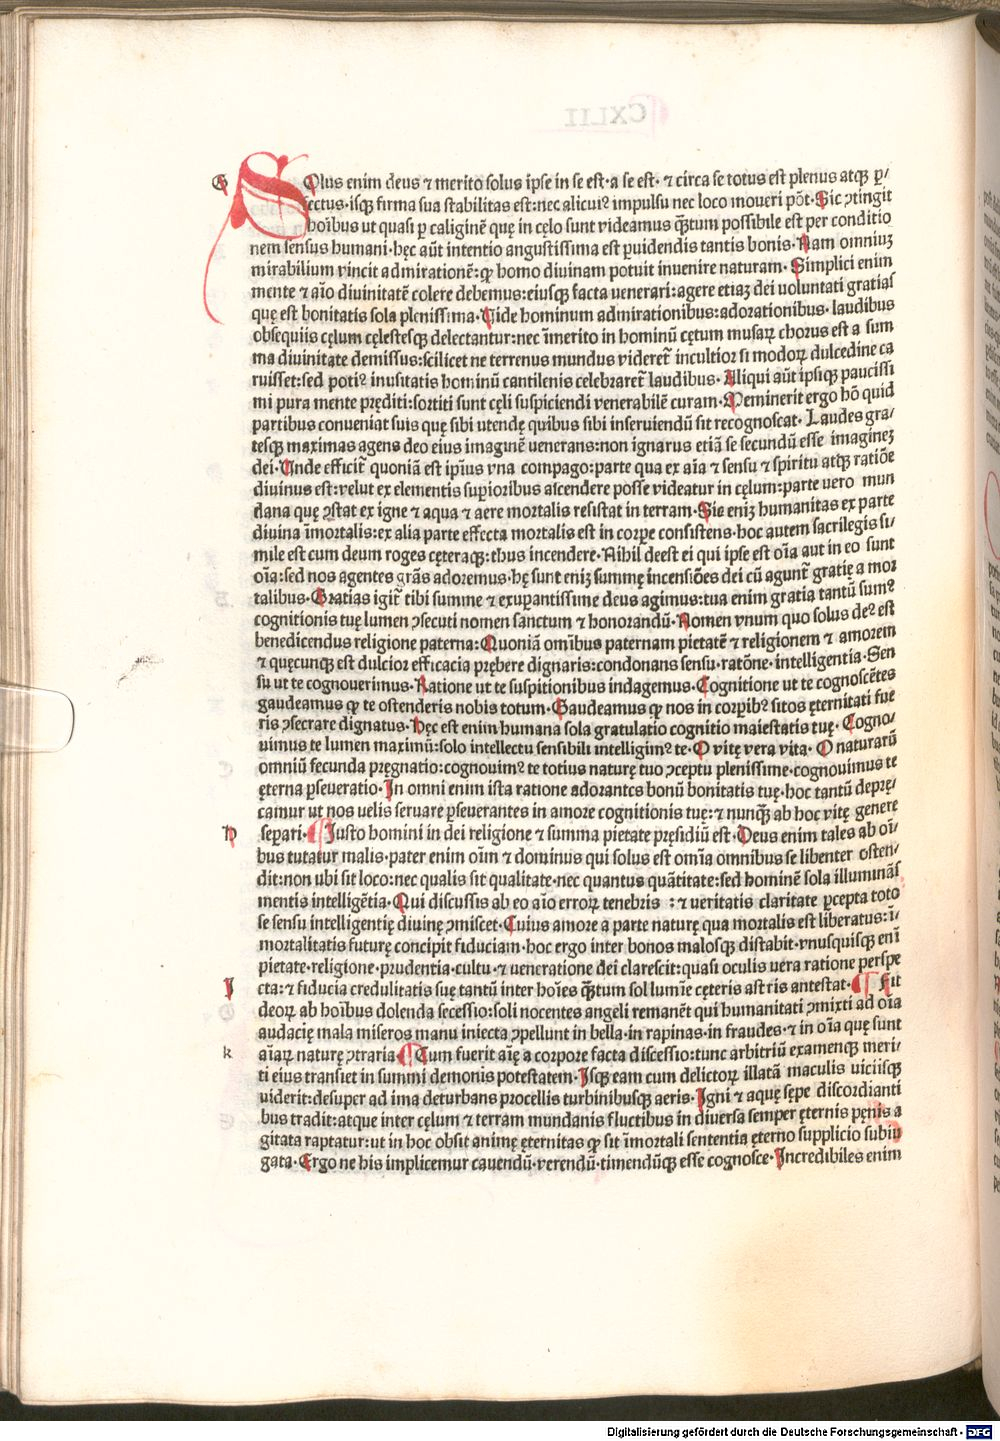 G SOlus enim deus ⁊ merito solus ipse in se est· a se est· ⁊ circa se totus est plenus atqꝫ ꝑ/
fectus·isqꝫ firma sua stabilitas est:nec alicuiꝰ impulsu nec loco moueri põt·Sic ɔtingit
hoĩbus ut quasi ꝑ caliginẽ quę in cęlo sunt videamus q̃tum possibile est per conditio
nem sensus humani·hęc aũt intentio angustissima est ꝑuidendis tantis bonis·Nam omniuꝫ
mirabilium vincit admirationẽ:ꝙ homo diuinam potuit inuenire naturam·Simplici enim
mente ⁊ aĩo diuinitatẽ colere debemus:eiusqꝫ facta uenerari:agere etiaꝫ dei uoluntati gratias
quę est bonitatis sola plenissima·Vide hominum admirationibus:adorationibus· laudibus
obsequiis cęlum cęlestesqꝫ delectantur:nec ĩmerito in hominũ cętum musaꝝ chorus est a sum
ma diuinitate demissus:scilicet ne terrenus mundus videret̃ incultior si modoꝝ dulcedine ca
ruisset:sed potiꝰ inusitatis hominũ cantilenis celebraret̃ laudibus·Aliqui aũt ipsiqꝫ paucissi
mi pura mente pręditi:sortiti sunt cęli suspiciendi venerabilẽ curam·Meminerit ergo hõ quid
partibus conueniat suis quę sibi utendę quibus sibi inseruiendũ sit recognoscat· Laudes gra/
tesqꝫ maximas agens deo eius imaginẽ venerans:non ignarus etiã se secundũ esse imagineꝫ
dei·Unde efficit̃ quoniã est ipĩus vna compago:parte qua ex aĩa ⁊ sensu ⁊ spiritu atqꝫ ratiõe
diuinus est:velut ex elementis suꝑioribus ascendere posse videatur in cęlum:parte uero mun
dana quę ɔstat ex igne ⁊ aqua ⁊ aere mortalis resistat in terram·Sic eniꝫ humanitas ex parte
diuina ĩmortalis:ex alia parte effecta mortalis est in corꝑe consistens·hoc autem sacrilegis si/
mile est cum deum roges cęteraqꝫ:thus incendere·Nihil deest ei qui ipse est oĩa aut in eo sunt
oĩa:sed nos agentes grãs adoremus·hę sunt eniꝫ summę incensiões dei cũ agunt̃ gratię a mor
talibus·Gratias igit̃ tibi summe ⁊ exuꝑantissime deus agimus:tua enim gratia tantũ sumꝰ
cognitionis tuę lumen ɔsecuti nomen sanctum ⁊ honorandũ·Nomen vnum quo solus deꝰ est
benedicendus religione paterna:Quoniã omĩbus paternam pietatẽ ⁊ religionem ⁊ amorem
⁊ quęcunqꝫ est dulcior efficacia prębere dignaris:condonans sensu·ratõne·intelligentia·Sen
su ut te cognouerimus·Ratione ut te suspitionibus indagemus·Cognitione ut te cognoscẽtes
gaudeamus ꝙ te ostenderis nobis totum·Gaudeamus ꝙ nos in corꝑibꝰ sitos ęternitati fue
ris ɔsecrare dignatus·Hęc est enim humana sola gratulatio cognitio maiestatis tuę· Cogno/
uimus te lumen maximũ:solo intellectu sensibili intelligimꝰ te·O vitę vera vita· O naturarũ
omniũ fecunda pręgnatio:cognouimꝰ te totius naturę tuo ɔceptu plenissime·cognouimus te
ęterna ꝑseueratio·In omni enim ista ratione adorantes bonũ bonitatis tuę·hoc tantũ deprę/
camur ut nos velis seruare ꝑseuerantes in amore cognitionis tuę:⁊ nunq̃ ab hoc vitę genere
H separi· Justo homini in dei religione ⁊ summa pietate pręsidiũ est·Deus enim tales ab oĩ/
bus tutatur malis·pater enim oĩm ⁊ dominus qui solus est omĩa omnibus se libenter osten/
dit:non ubi sit loco:nec qualis sit qualitate·nec quantus quãtitate:sed hominẽ sola illuminãs
mentis intelligẽtia·Qui discussis ab eo aĩo erroiꝝ tenebris :⁊ ueritatis claritate ꝑcepta toto
se sensu intelligentię diuinę ɔmiscet·Cuius amore a parte naturę qua mortalis est liberatus:ĩ/
mortalitatis futurę concipit fiduciam·hoc ergo inter bonos malosqꝫ distabit·vnusquisqꝫ enĩ
pietate·religione·prudentia·cultu·⁊ ueneratione dei clarescit:quasi oculis uera ratione perspe
I cta:⁊ fiducia credulitatis suę tantũ inter hoĩes q̃tum sol lumĩe cęteris astris antestat· Fit
deoꝝ ab hoĩbus dolenda secessio:soli nocentes angeli remanẽt qui humanitati ɔmixti ad oĩa
audacię mala miseros manu iniecta ɔpellunt in bella·in rapinas·in fraudes·⁊ in oĩa quę sunt
k aĩaꝝ naturę ɔtraria· Cum fuerit aĩę a corpore facta discessio:tunc arbitriũ examenqꝫ meri/
ti eius transiet in summi demonis potestatem·Isqꝫ eam cum delictoꝝ illatã maculis viciisqꝫ
viderit:desuper ad ima deturbans procellis turbinibusqꝫ aeris·Igni ⁊ aquę sępe discordianti
bus tradit:atque inter cęlum ⁊ terram mundanis fluctibus in diuersa semper ęternis pęnis a
gitata raptatur:ut in hoc obsit animę ęternitas ꝙ sit ĩmortali sententia ęterno supplicio subiu
gata·Ergo ne his implicemur cauendũ·verendũ·timendũqꝫ esse cognosce·Incredibiles enim
Digitalisierung gefördert durch die Deutsche Forschungsgemeinschaft - DFG